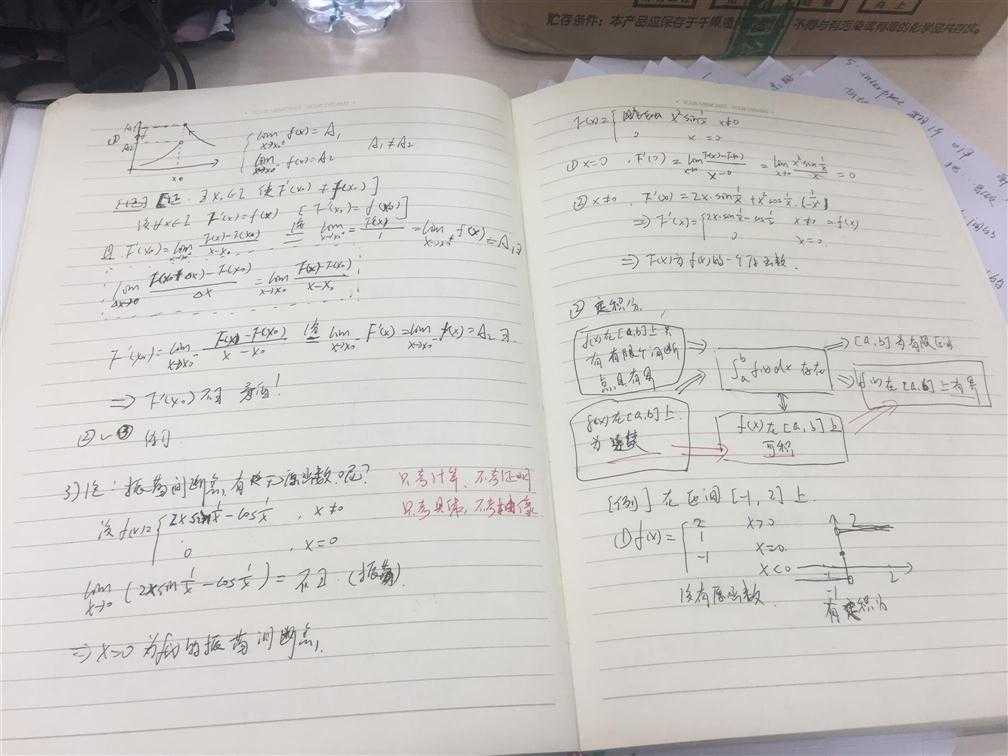 贮存条件：本产品应保存于干燥通
不得与有污染或有毒的化学品共存放。
A₁
A₂
x₀
lim f(x)=A₁
x→x₀⁺
lim f(x)=A₂
x→x₀⁻
A₁≠A₂
证: ∃x₀∈I 使F'(x₀)≠f(x₀)]
设∀x∈I F'(x)=f(x) [F'(x₀)=f(x₀)]
且 F'(x₀)=lim x→x₀⁺ (F(x)-F(x₀))/(x-x₀) = lim x→x₀⁺ F'(x)/1 = lim x→x₀⁺ f(x)=A₁,∃
lim Δx→0 (F(x₀+Δx)-F(x₀))/Δx = lim x→x₀ (F(x)-F(x₀))/(x-x₀)
F'(x₀)=lim x→x₀⁻ (F(x)-F(x₀))/(x-x₀) lim x→x₀⁻ F'(x)=lim x→x₀⁻ f(x)=A₂ ∃
⇒ F'(x₀)不∃ 矛盾!
② ③
3)注: 振荡间断点有 原函数呢?
只考计算、不考证明
只考具体，不考抽象
设f(x)= { 2x sin 1/x - cos 1/x , x≠0
0 , x=0
lim x→0 (2x sin 1/x - cos 1/x) = 不∃ (振荡)
⇒ x=0 为f(x)的振荡间断点,
F(x)= { x² sin 1/x x≠0
0 x=0
① x=0 , F'(0) = lim x→0 (F(x)-F(0))/(x-0) = lim x→0 (x² sin 1/x)/x = 0
② x≠0, F'(x) = 2x·sin 1/x + x² cos 1/x·(-1/x²)
⇒ F'(x)= { 2x·sin 1/x - cos 1/x x≠0 = f(x)
0 x=0
⇒ F(x)为f(x)的一个原函数.
② 定积分
f(x)在[a,b]上只
有有限个间断
点且有界
∫ₐᵇ f(x)dx 存在
[a,b]为有限区间
f(x)在[a,b]上有界
f(x)在[a,b]上
为连续
f(x)在[a,b]上
可积
[例] 在区间[-1,2]上
① f(x)= { 2 x>0
1 x=0
-1 x<0
2
-1
2
没有原函数
有定积分